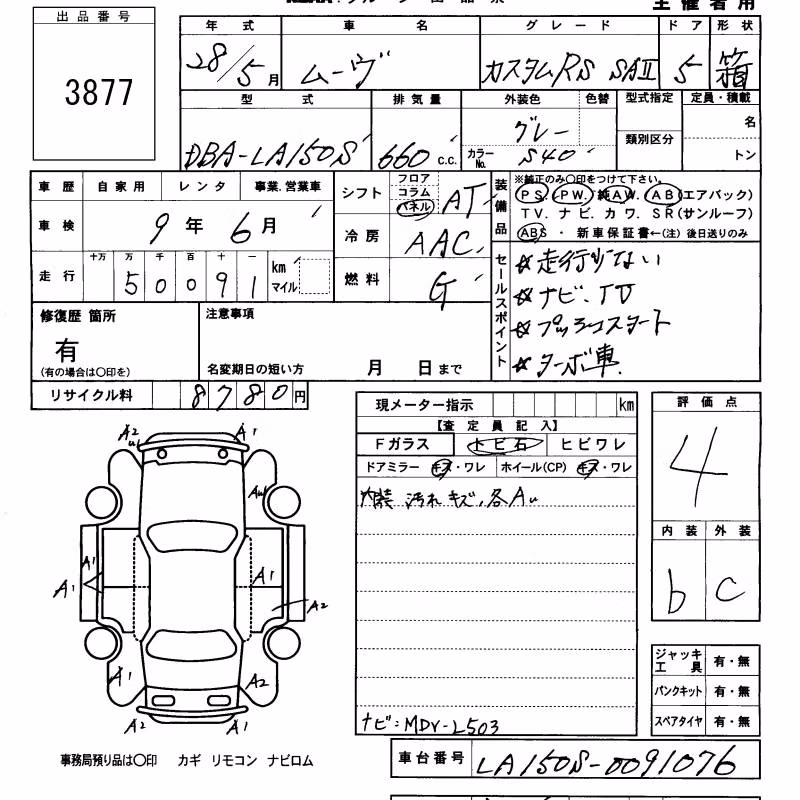 主催者用
出品番号
3877
年式 車名 グレード ドア 形状
28/5月 ムーヴ カスタムRS SAII 5 箱
型式 排気量 外装色 色替 型式指定 定員・積載
DBA-LA150S 660 c.c. グレー 類別区分 名
カラーNo. S40 トン
車歴 自家用 レンタ 事業、営業車
車検 9年 6月
走行 十万 万 千 百 十 一
50091 km マイル
シフト フロア コラム パネル AT
冷房 AAC
燃料 G
装備品
※純正のみ○印をつけて下さい。
PS PW. 純AW. AB(エアバック)
TV. ナビ. カワ. SR(サンルーフ)
ABS ・ 新車保証書←(注) 後日送りのみ
セールスポイント
☆走行少ない
☆ナビ、TV
☆プッシュスタート
☆ターボ車.
修復歴 箇所
有
(有の場合は○印を)
注意事項
名変期日の短い方 月 日まで
リサイクル料 8780円
現メーター指示 km
【査定員記入】
Fガラス トビ石 ヒビワレ
ドアミラー キズ・ワレ ホイール(CP) キズ・ワレ
内装 汚れ キズ、各Au
ナビ:MDV-L503
評価点
4
内装 外装
b C
A2 A1
Au
A1
A1
A1
A2
A1 A2
A2 A1
ジャッキ工具 有・無
パンクキット 有・無
スペアタイヤ 有・無
事務局預り品は○印 カギ リモコン ナビロム
車台番号 LA150S-0091076